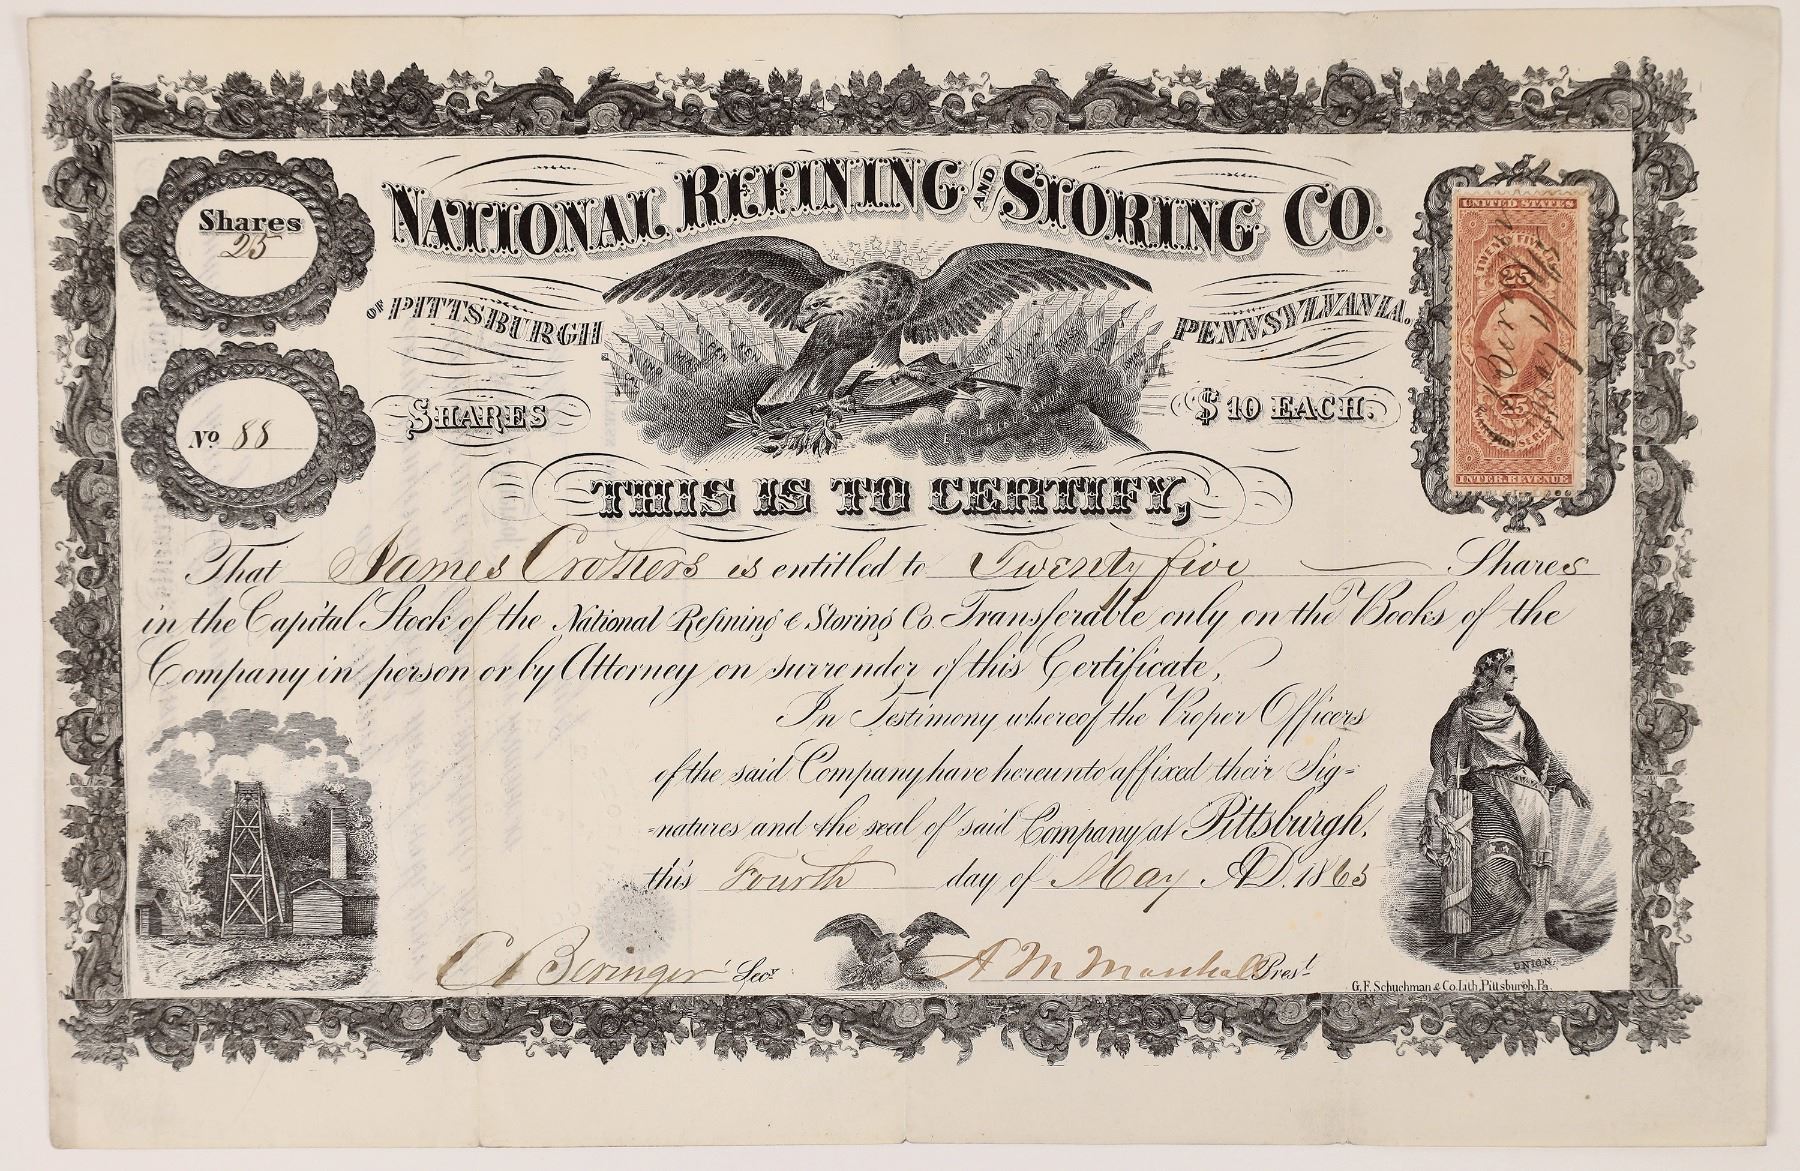 NATIONAL REFINING AND STORING CO.
OF PITTSBURGH PENNSYLVANIA.
SHARES $10 EACH.
Shares
25
No 88
UNITED STATES
TWENTY FIVE
25
25
INTER. REVENUE
E PLURIBUS UNUM
THIS IS TO CERTIFY,
That James Crothers is entitled to Twenty five Shares
in the Capital Stock of the National Refining & Storing Co. Transferable only on the Books of the
Company in person or by Attorney on surrender of this Certificate,
In Testimony whereof the Proper Officers
of the said Company have hereunto affixed their Sig=
=natures and the seal of said Company at Pittsburgh,
this Fourth day of May A.D. 1865
C Beringer Secy
A M Marshall Prest
UNION
G.F. Schuchman & Co. Lith, Pittsburgh, Pa.